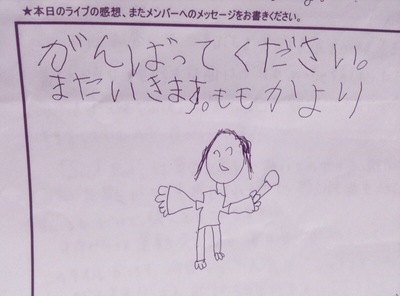 ★本日のライブの感想、またメンバーへのメッセージをお書きください。
がんばってください。
またいきます。ももかより